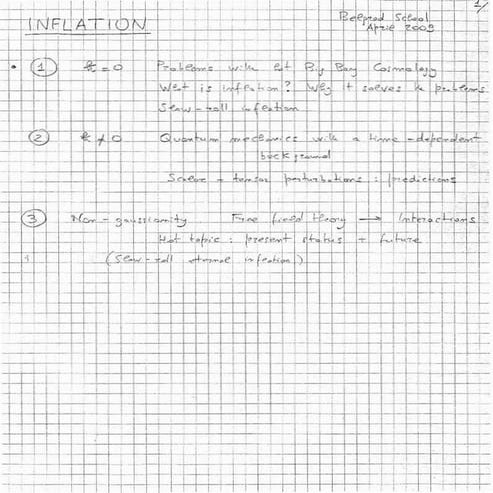 1/
INFLATION
Belgrad School
April 2009
• 1 k = 0 Problems with st Big Bang Cosmology
What is inflation? Why it solves the problems
Slow-roll inflation
2 k ≠ 0 Quantum mechanics with a time-dependent
background
Scalar + tensor perturbations : predictions
3 Non-gaussianity Free field theory → Interactions
Hot topic : present status + future
(Slow-roll eternal inflation)